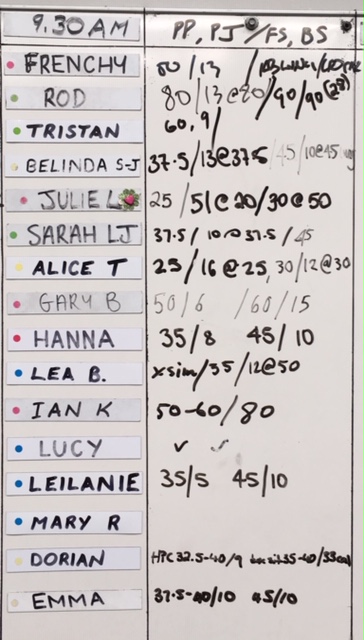 9.30 AM PP, PJ / FS, BS
FRENCHY 50 / 13 /
ROD 80 / 13 @ 80 / 90 / 90 (28)
TRISTAN 60, 9 /
BELINDA S-J 37.5 / 13 @ 37.5 / 45 / 10 @ 45
JULIE L 25 / 51 @ 20 / 30 @ 50
SARAH LJ 37.5 / 10 @ 37.5 / 45
ALICE T 25 / 16 @ 25, 30 / 12 @ 30
GARY B 50 / 6 / 60 / 15
HANNA 35 / 8 45 / 10
LEA B. xsim / 35 / 12 @ 50
IAN K 50-60 / 80
LUCY ✓ ✓
LEILANIE 35/5 45/10
MARY R
DORIAN HPC 32.5-40/9 35-40/
EMMA 37.5-40/10 45/10